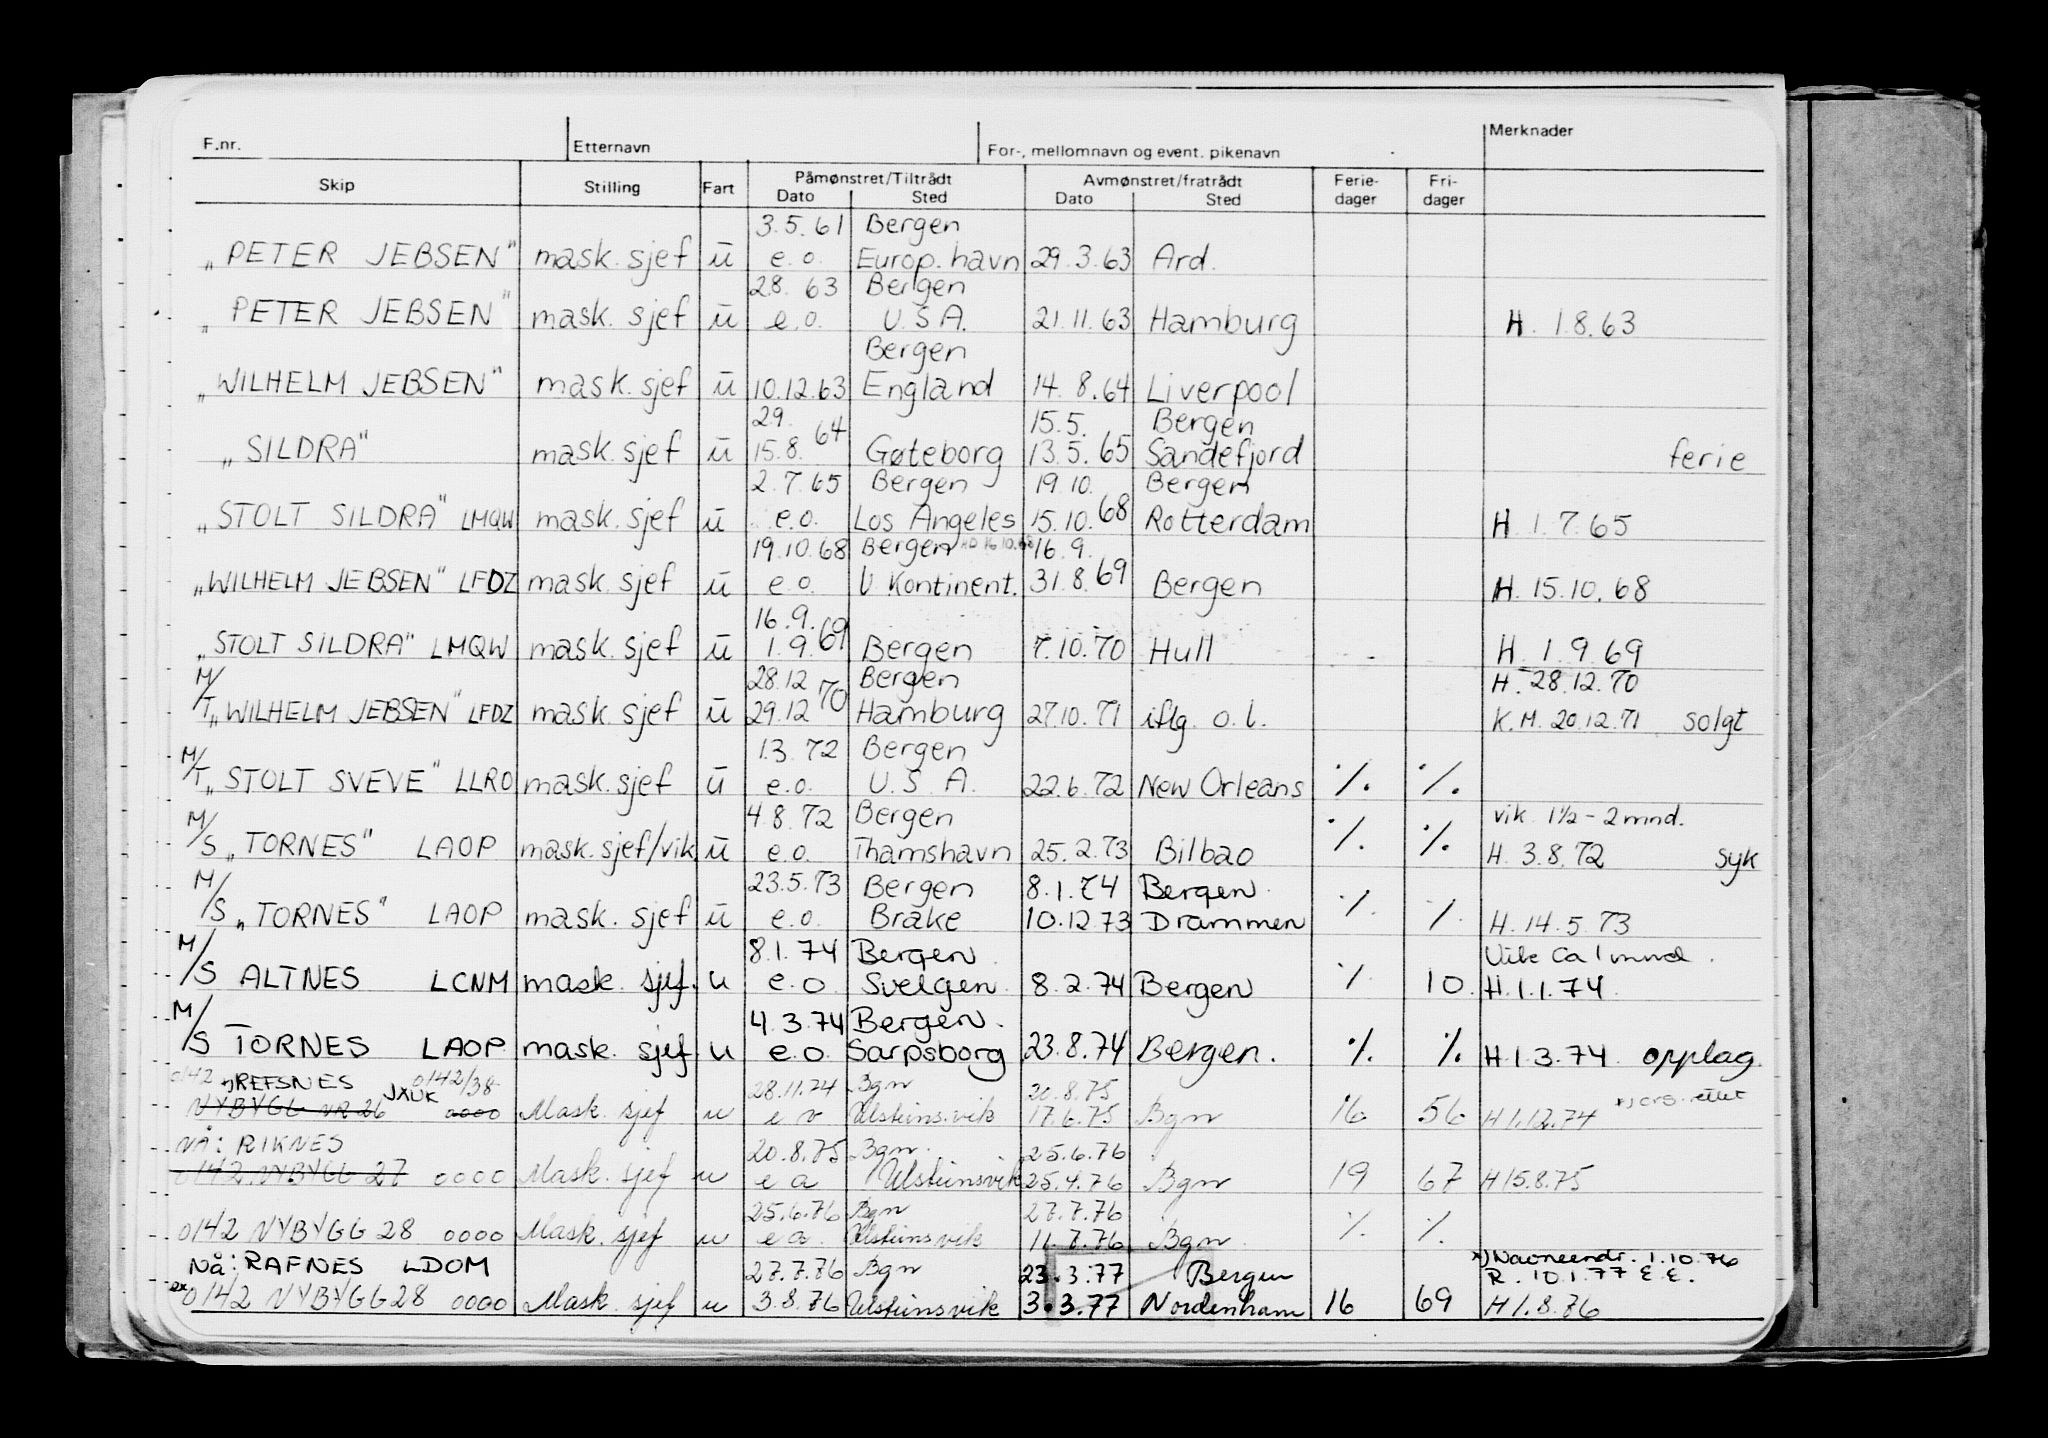 F.nr. Etternavn For-, mellomnavn og event. pikenavn Merknader
Skip Stilling Fart Påmønstret/Tiltrådt Avmønstret/fratrådt Ferie- Fri-
Dato Sted Dato Sted dager dager
3.5.61 Bergen
„PETER JEBSEN" mask. sjef ū e.o. Europ. havn 29.3.63 Ard.
28. 63 Bergen
„PETER JEBSEN" mask. sjef ū e.o. U.S.A. 21.11.63 Hamburg H. 1.8.63
Bergen
„WILHELM JEBSEN" mask. sjef ū 10.12.63 England 14.8.64 Liverpool
29. 64 15.5. Bergen
„SILDRA" mask. sjef ū 15.8. Gøteborg 13.5.65 Sandefjord ferie
2.7.65 Bergen 19.10. Bergen
„STOLT SILDRA" LMQW mask. sjef ū e.o. Los Angeles 15.10.68 Rotterdam H. 1.7.65
19.10.68 Bergen 16.9.
„WILHELM JEBSEN" LFDZ mask. sjef ū e.o. U Kontinent. 31.8.69 Bergen H. 15.10.68
16.9.
„STOLT SILDRA" LMQW mask. sjef ū 1.9.69 Bergen 7.10.70 Hull H. 1.9.69
M/ 28.12 70 Bergen H. 28.12.70
T „WILHELM JEBSEN" LFDZ mask. sjef ū 29.12 Hamburg 27.10.71 iflg. o.l. K.M. 20.12.71 solgt
M/ 1.3.72 Bergen
T „STOLT SVEVE" LLRO mask. sjef ū e.o. U.S.A. 22.6.72 New Orleans ./. ./.
M/ 4.8.72 Bergen vik. 1½-2 mnd.
S „TORNES" LAOP mask. sjef/vik ū e.o. Thamshavn 25.2.73 Bilbao ./. ./. H. 3.8.72 syk
M/ 23.5.73 Bergen 8.1.74 Bergen
S „TORNES" LAOP mask. sjef ū e.o. Brake 10.12.73 Drammen ./. ./. H. 14.5.73
M/ 8.1.74 Bergen Vik Ca 1 mnd.
S ALTNES LCNM mask. sjef. u e.o. Svelgen 8.2.74 Bergen ./. 10. H.1.1.74
M/ 4.3.74 Bergen.
S TORNES LAOP mask. sjef u e.o. Sarpsborg 23.8.74 Bergen. ./. ./. H 1.3.74 opplag.
0142 *) REFSNES JXUK 0142/38 28.11.74 Bgn 20.8.75
NYBYGG NR 26 0000 Mask. sjef u e o Ulsteinsvik 17.6.75 Bgn 16 56 H 1.12.74
NÅ: RIKNES 20.8.75 Bgn. 25.6.76
0142 NYBYGG 27 0000 Mask. sjef u e a Ulsteinsvik 25.4.76 Bgn 19 67 H 15.8.75
25.6.76 Bgn 27.7.76
0142 NYBYGG 28 0000 Mask. sjef u e a. Ulsteinsvik 11.7.76 Bgn. ./. ./.
Nå: RAFNES LDOM 27.7.76 Bgn 23.3.77 Bergen *) Navneendr. 1.10.76
R. 10.1.77 E.E.
ex 0142 NYBYGG 28 0000 Mask. sjef u 3.8.76 Ulsteinsvik 3.3.77 Nordenham 16 69 H 1.8.76